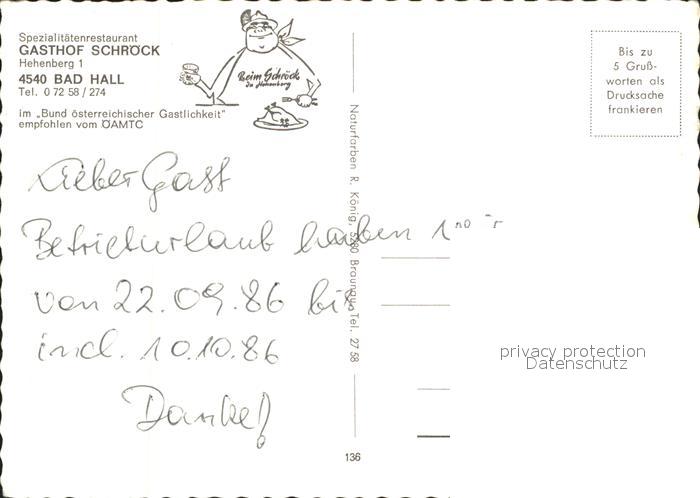 Spezialitätenrestaurant
GASTHOF SCHRÖCK
Hehenberg 1
4540 BAD HALL
Tel. 0 72 58 / 274
Im „Bund österreichischer Gastlichkeit"
empfohlen vom ÖAMTC
Beim Schröck
In Hehenberg
Bis zu
5 Gruß-
worten als
Drucksache
frankieren
Lieber Gast
Betriebsurlaub haben
von 22.09.86 bis
incl. 10.10.86
Danke!
Naturfarben R. König, 5280 Braunau, Tel. 27 58
privacy protection
Datenschutz
136